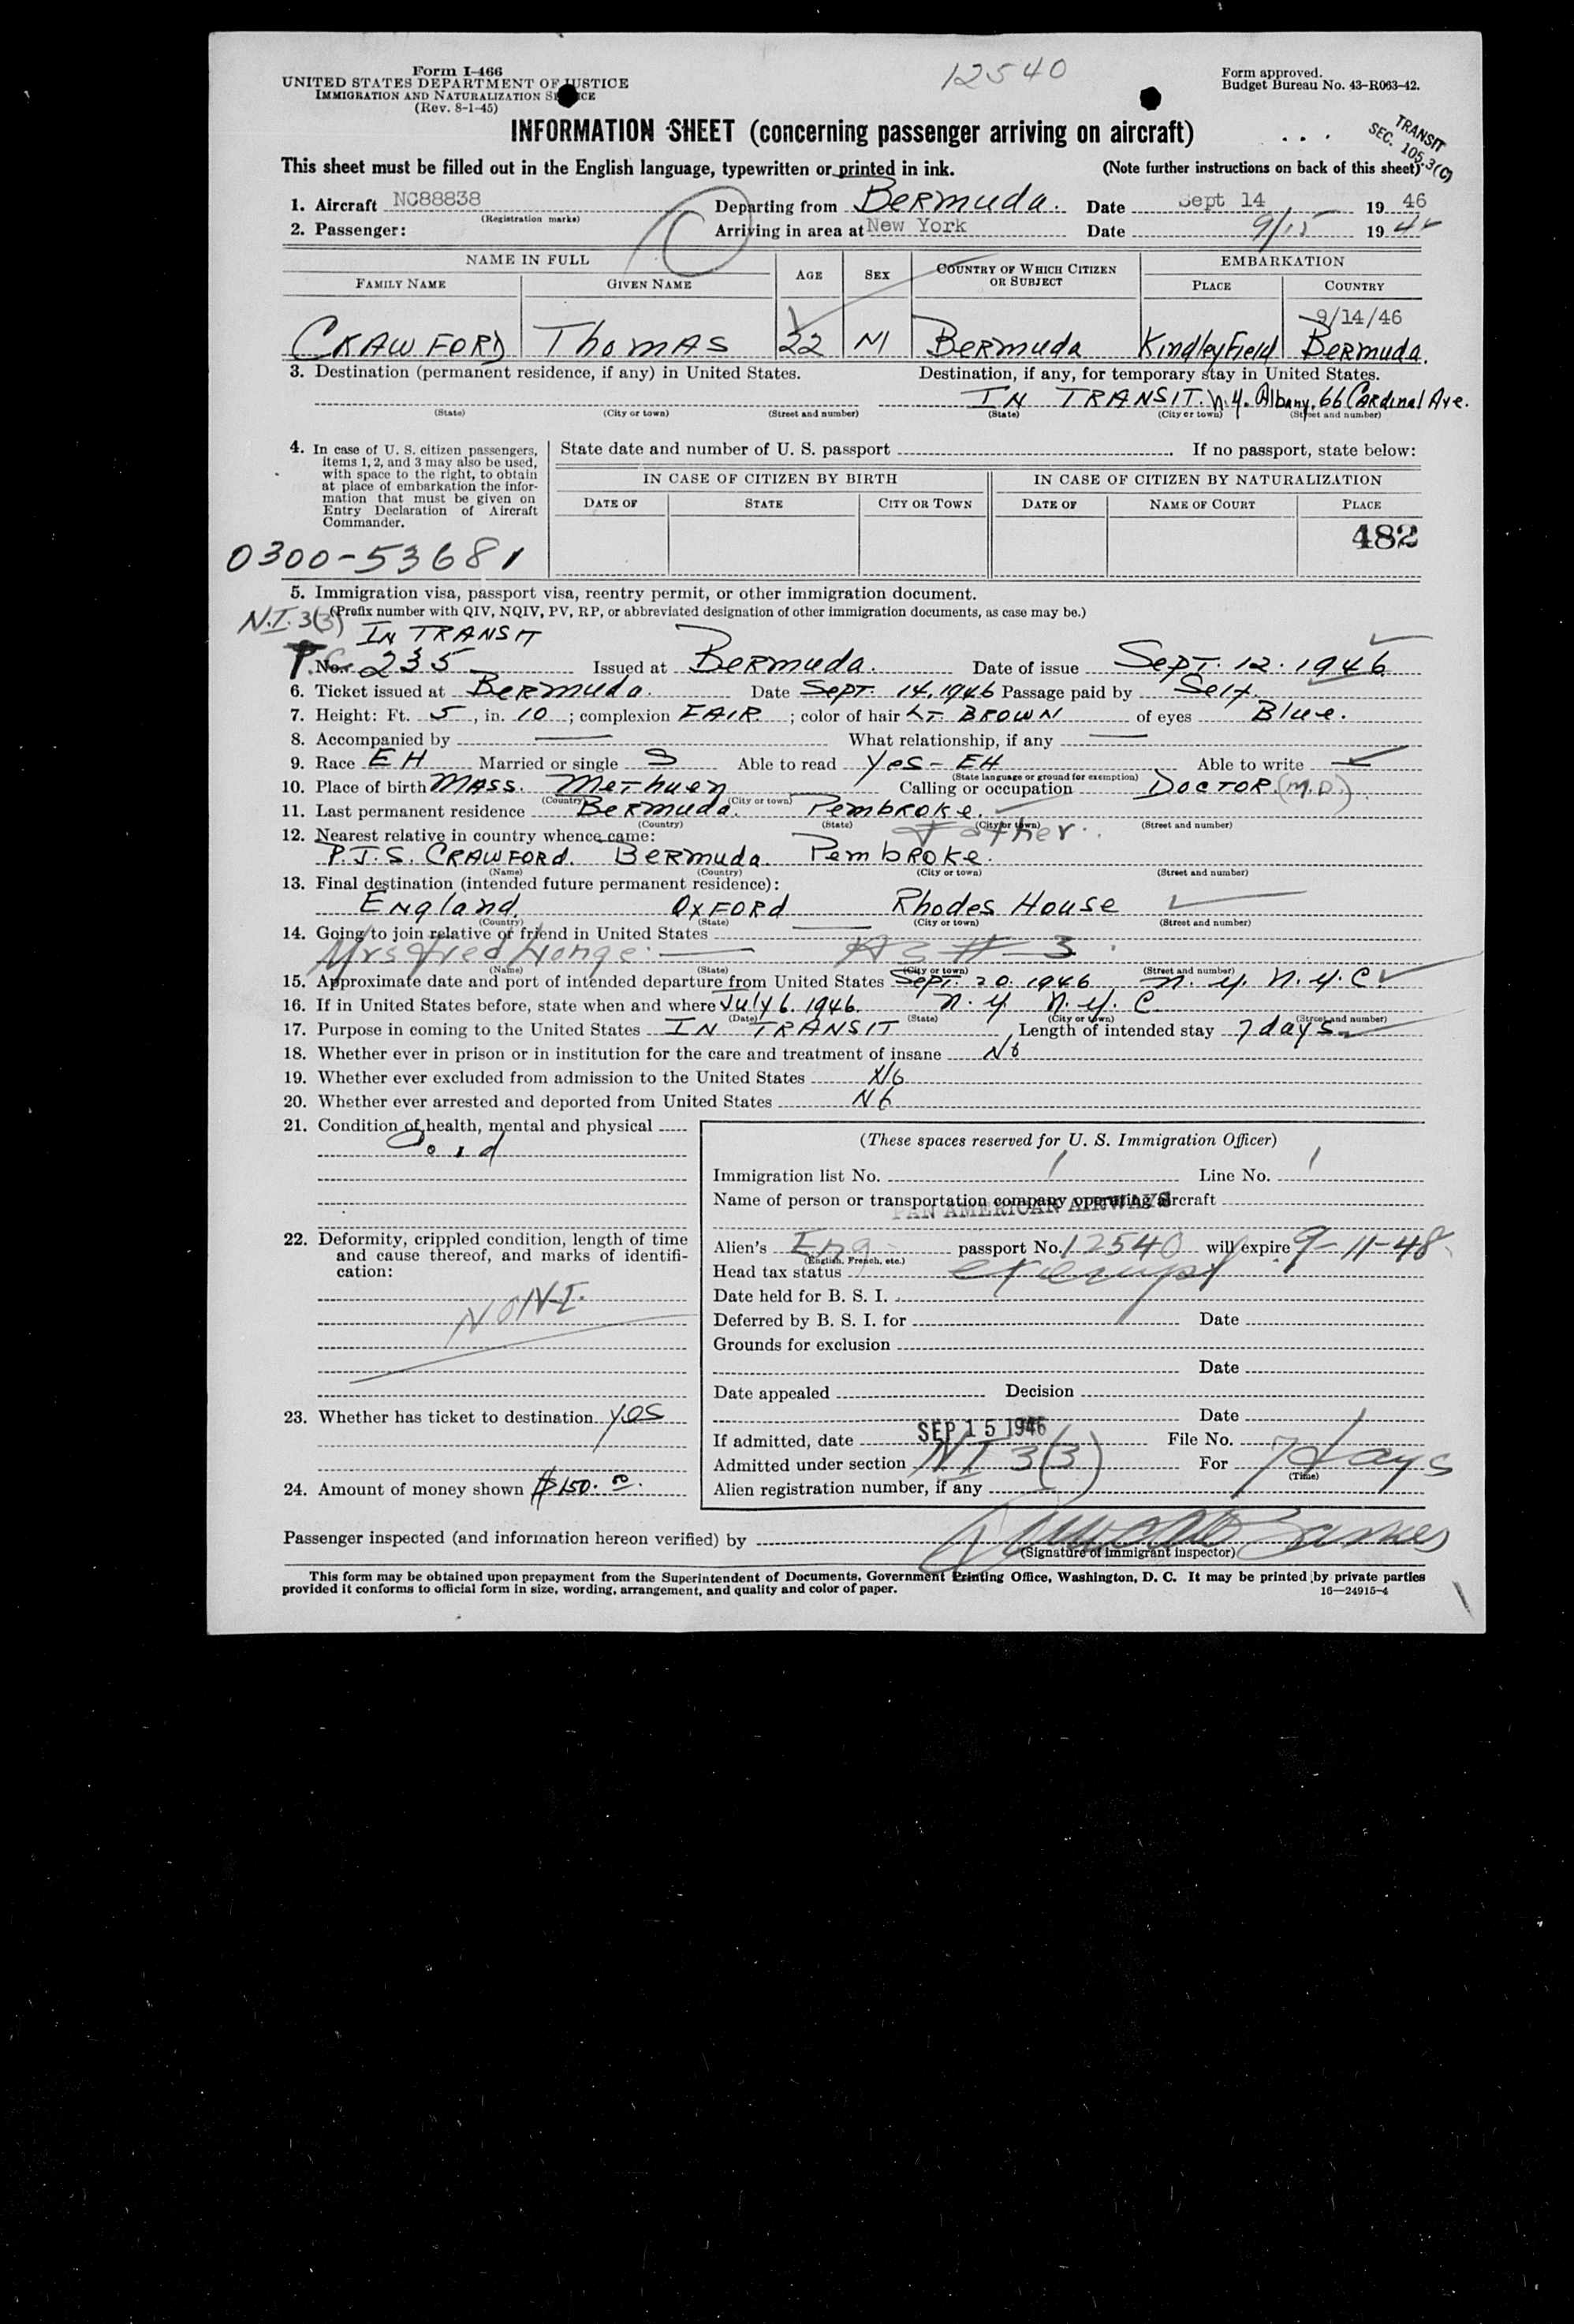 Form I-466
UNITED STATES DEPARTMENT OF JUSTICE
IMMIGRATION AND NATURALIZATION SERVICE
(Rev. 8-1-45)
12540
Form approved.
Budget Bureau No. 43-R063-42.
INFORMATION SHEET (concerning passenger arriving on aircraft)
TRANSIT
SEC. 105.3(C)
This sheet must be filled out in the English language, typewritten or printed in ink. (Note further instructions on back of this sheet)
1. Aircraft NC88838 Departing from Bermuda. Date Sept 14 19 46
(Registration marks)
2. Passenger: Arriving in area at New York Date 9/15 19 46
NAME IN FULL AGE SEX COUNTRY OF WHICH CITIZEN OR SUBJECT EMBARKATION
FAMILY NAME GIVEN NAME PLACE COUNTRY
9/14/46
CRAWFORD Thomas 22 M Bermuda Kindley Field Bermuda.
3. Destination (permanent residence, if any) in United States. Destination, if any, for temporary stay in United States.
IN TRANSIT. N.Y. Albany, 66 Cardinal Ave.
(State) (City or town) (Street and number) (State) (City or town) (Street and number)
4. In case of U. S. citizen passengers, items 1, 2, and 3 may also be used, with space to the right, to obtain at place of embarkation the information that must be given on Entry Declaration of Aircraft Commander.
State date and number of U. S. passport If no passport, state below:
IN CASE OF CITIZEN BY BIRTH IN CASE OF CITIZEN BY NATURALIZATION
DATE OF STATE CITY OR TOWN DATE OF NAME OF COURT PLACE
482
0300-53681
5. Immigration visa, passport visa, reentry permit, or other immigration document.
N.I. 3(3) (Prefix number with QIV, NQIV, PV, RP, or abbreviated designation of other immigration documents, as case may be.)
IN TRANSIT
No. 235 Issued at Bermuda. Date of issue Sept. 12. 1946
6. Ticket issued at Bermuda. Date Sept. 14. 1946 Passage paid by Self.
7. Height: Ft. 5, in. 10; complexion FAIR; color of hair LT. BROWN of eyes Blue.
8. Accompanied by What relationship, if any
9. Race EH Married or single S Able to read Yes - EH Able to write
(State language or ground for exemption)
10. Place of birth MASS. Methuen Calling or occupation DOCTOR (M.D.)
(Country) (City or town)
11. Last permanent residence Bermuda. Pembroke.
(Country) (State) (City or town) (Street and number)
12. Nearest relative in country whence came: Father
P.J.S. CRAWFORD. Bermuda. Pembroke.
(Name) (Country) (City or town) (Street and number)
13. Final destination (intended future permanent residence):
England. OXFORD Rhodes House
(Country) (State) (City or town) (Street and number)
14. Going to join relative or friend in United States
Mrs Fred As # 3
(Name) (State) (City or town) (Street and number)
15. Approximate date and port of intended departure from United States Sept. 20. 1946 N.Y. N.Y.C.
16. If in United States before, state when and where July 6. 1946. N.Y. N.Y.C.
(Date) (State) (City or town) (Street and number)
17. Purpose in coming to the United States IN TRANSIT, Length of intended stay 7 days
18. Whether ever in prison or in institution for the care and treatment of insane No
19. Whether ever excluded from admission to the United States No
20. Whether ever arrested and deported from United States No
21. Condition of health, mental and physical
Good
(These spaces reserved for U. S. Immigration Officer)
Immigration list No. 1 Line No. 1
Name of person or transportation company operating aircraft
PAN AMERICAN AIRWAYS
22. Deformity, crippled condition, length of time and cause thereof, and marks of identification:
NONE
Alien's Eng passport No. 12540 will expire 9-11-48
(English, French, etc.)
Head tax status exempt
Date held for B. S. I.
Deferred by B. S. I. for Date
Grounds for exclusion
Date
Date appealed Decision
Date
23. Whether has ticket to destination Yes
If admitted, date SEP 15 1946 File No.
Admitted under section NI 3(3) For 7 days
(Time)
24. Amount of money shown $150.00
Alien registration number, if any
Passenger inspected (and information hereon verified) by
(Signature of immigrant inspector)
This form may be obtained upon prepayment from the Superintendent of Documents, Government Printing Office, Washington, D. C. It may be printed by private parties
provided it conforms to official form in size, wording, arrangement, and quality and color of paper. 16—24915-4